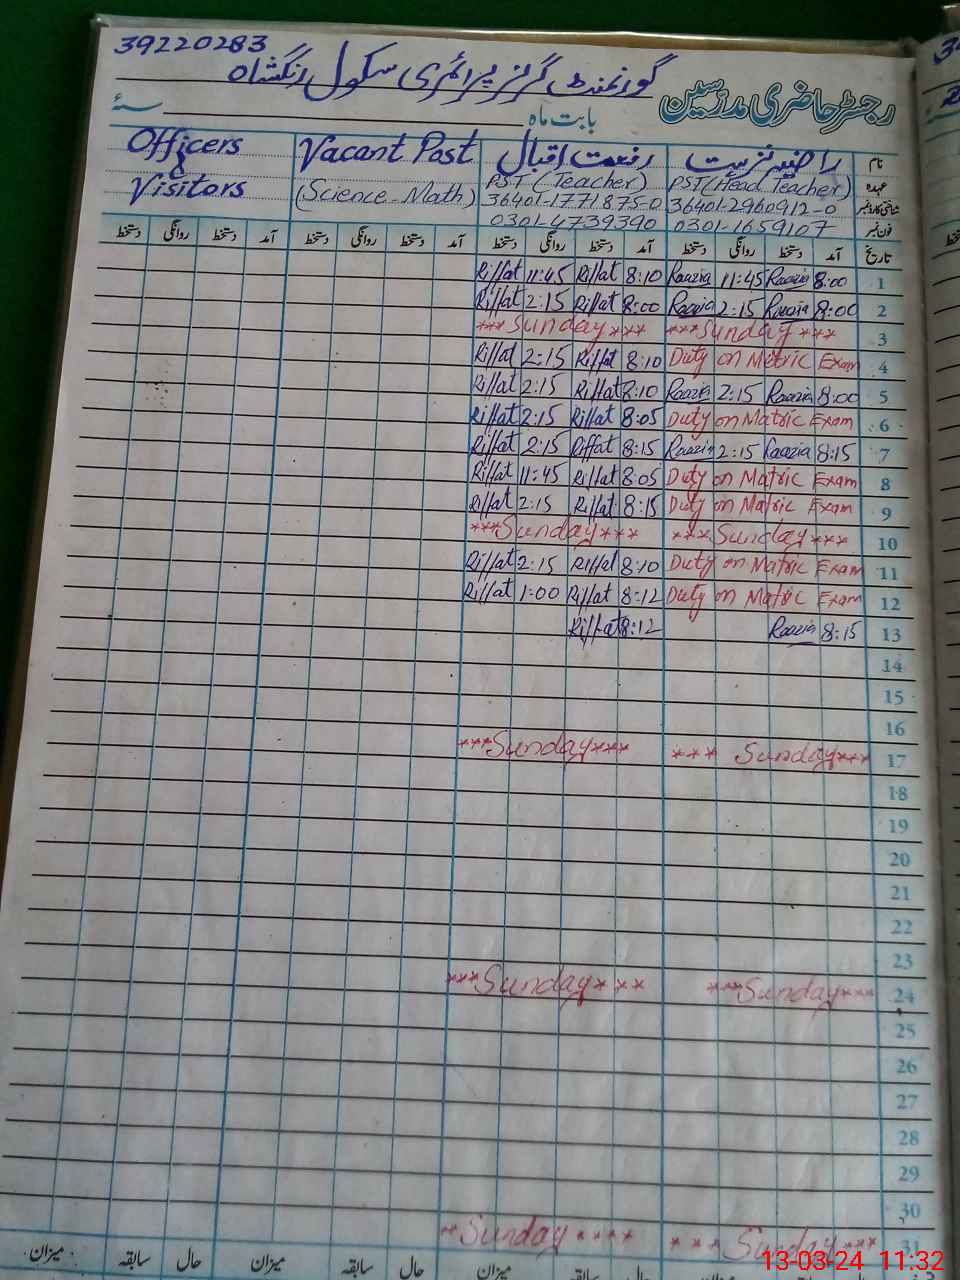 39220283
گورنمنٹ گرلز پرائمری سکول رنگشاہ
رجسٹر حاضری مدرسین
بابت ماہ
سنہ
نام راضیہ نزہت رفعت اقبال Vacant Post Officers & Visitors
عہدہ PST (Head Teacher) PST (Teacher) (Science-Math)
شناختی کارڈ نمبر 36401-2960912-0 36401-1771875-0
فون نمبر 0301-1659107 0301-4739390
تاریخ آمد دستخط روانگی دستخط آمد دستخط روانگی دستخط آمد دستخط روانگی دستخط آمد دستخط روانگی دستخط
Riffat 11:45 Riffat 8:10 Raazia 11:45 Raazia 8:00 1
Riffat 2:15 Riffat 8:00 Raazia 2:15 Raazia 8:00 2
***Sunday*** ***Sunday*** 3
Riffat 2:15 Riffat 8:10 Duty on Metric Exam 4
Riffat 2:15 Riffat 8:10 Raazia 2:15 Raazia 8:00 5
Riffat 2:15 Riffat 8:05 Duty on Matric Exam 6
Riffat 2:15 Riffat 8:15 Raazia 2:15 Raazia 8:15 7
Riffat 11:45 Riffat 8:05 Duty on Matric Exam 8
Riffat 2:15 Riffat 8:15 Duty on Matric Exam 9
***Sunday*** ***Sunday*** 10
Riffat 2:15 Riffat 8:10 Duty on Matric Exam 11
Riffat 1:00 Riffat 8:12 Duty on Matric Exam 12
Riffat 8:12 Raazia 8:15 13
14
15
16
***Sunday*** *** Sunday*** 17
18
19
20
21
22
23
***Sunday*** ***Sunday*** 24
25
26
27
28
29
30
**Sunday**** ***Sunday*** 31
میزان حال سابقہ میزان حال سابقہ میزان
13-03-24 11:32